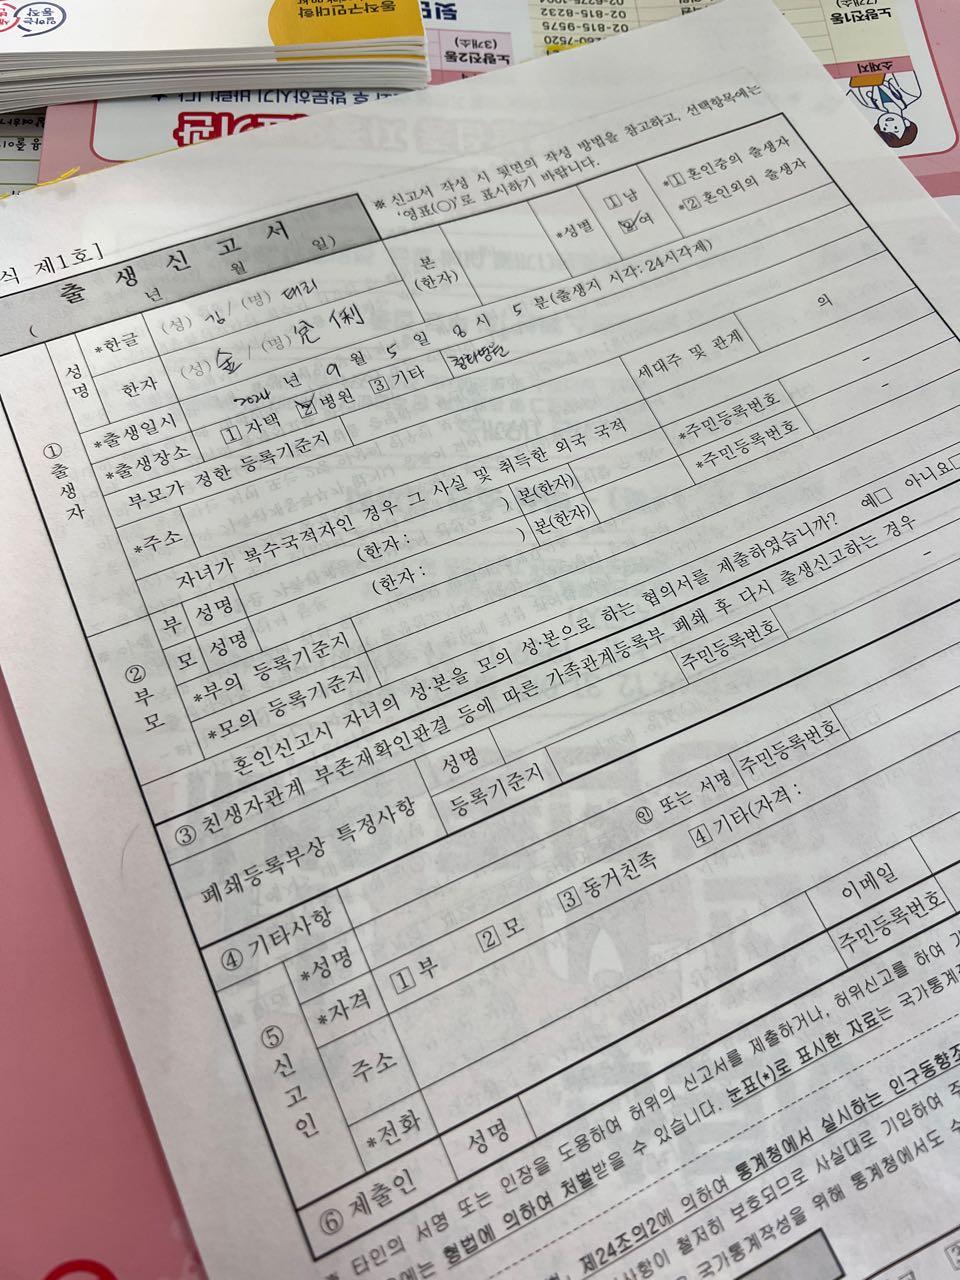 동작구민대학
02-815-8232
02-815-9575
노량진1동
노량진2동
(3개소)
소재지
후 방문하시기 바랍니다
식 제1호]
출 생 신 고 서
( 년 월 일)
※ 신고서 작성 시 뒷면의 작성 방법을 참고하고, 선택항목에는
'영표(○)'로 표시하기 바랍니다.
① 출생자
성명
*한글
(성) 김 / (명) 태리
본
(한자)
*성별
1 남
2 여
*1 혼인중의 출생자
*2 혼인외의 출생자
한자
(성) 金 / (명) 兌 俐
*출생일시
2024 년 9 월 5 일 8 시 5 분(출생지 시각: 24시각제)
*출생장소
1 자택 2 병원 3 기타
부모가 정한 등록기준지
*주소
세대주 및 관계
의
자녀가 복수국적자인 경우 그 사실 및 취득한 외국 국적
② 부모
부 성명
(한자: )
본(한자)
*주민등록번호
-
모 성명
(한자: )
본(한자)
*주민등록번호
-
*부의 등록기준지
*모의 등록기준지
혼인신고시 자녀의 성·본을 모의 성·본으로 하는 협의서를 제출하였습니까? 예□ 아니요□
③ 친생자관계 부존재확인판결 등에 따른 가족관계등록부 폐쇄 후 다시 출생신고하는 경우
폐쇄등록부상 특정사항
성명
주민등록번호
-
등록기준지
④ 기타사항
⑤ 신고인
*성명
㊞ 또는 서명
주민등록번호
*자격
1 부 2 모 3 동거친족 4 기타(자격:
주소
*전화
이메일
⑥ 제출인
성명
주민등록번호
※ 타인의 서명 또는 인장을 도용하여 허위의 신고서를 제출하거나, 허위신고를 하여
에는 형법에 의하여 처벌받을 수 있습니다. 눈표(*)로 표시한 자료는 국가통계작
제24조의2에 의하여 통계청에서 실시하는 인구동향조
사항이 철저히 보호되므로 사실대로 기입하여 주
국가통계작성을 위해 통계청에서도 수